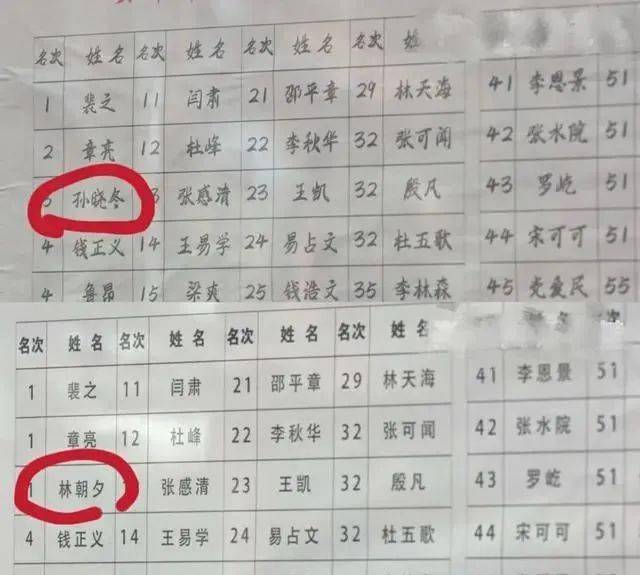 名次 姓名 名次 姓名 名次 姓名 名次 姓
1 裴之 11 闫肃 21 邵平章 29 林天海 41 李恩景 51
2 章亮 12 杜峰 22 李秋华 32 张可闻 42 张水院 51
3 孙晓冬 3 张感清 23 王凯 32 殷凡 43 罗屹 51
4 钱正义 14 王易学 24 易占文 32 杜五歌 44 宋可可 51
4 鲁昂 15 梁爽 25 钱浩文 35 李林森 45 党爱民 55
名次 姓名 名次 姓名 名次 姓名 名次 姓名
1 裴之 11 闫肃 21 邵平章 29 林天海 41 李恩景 51
1 章亮 12 杜峰 22 李秋华 32 张可闻 42 张水院 51
1 林朝夕 张感清 23 王凯 32 殷凡 43 罗屹 51
4 钱正义 14 王易学 24 易占文 32 杜五歌 44 宋可可 51